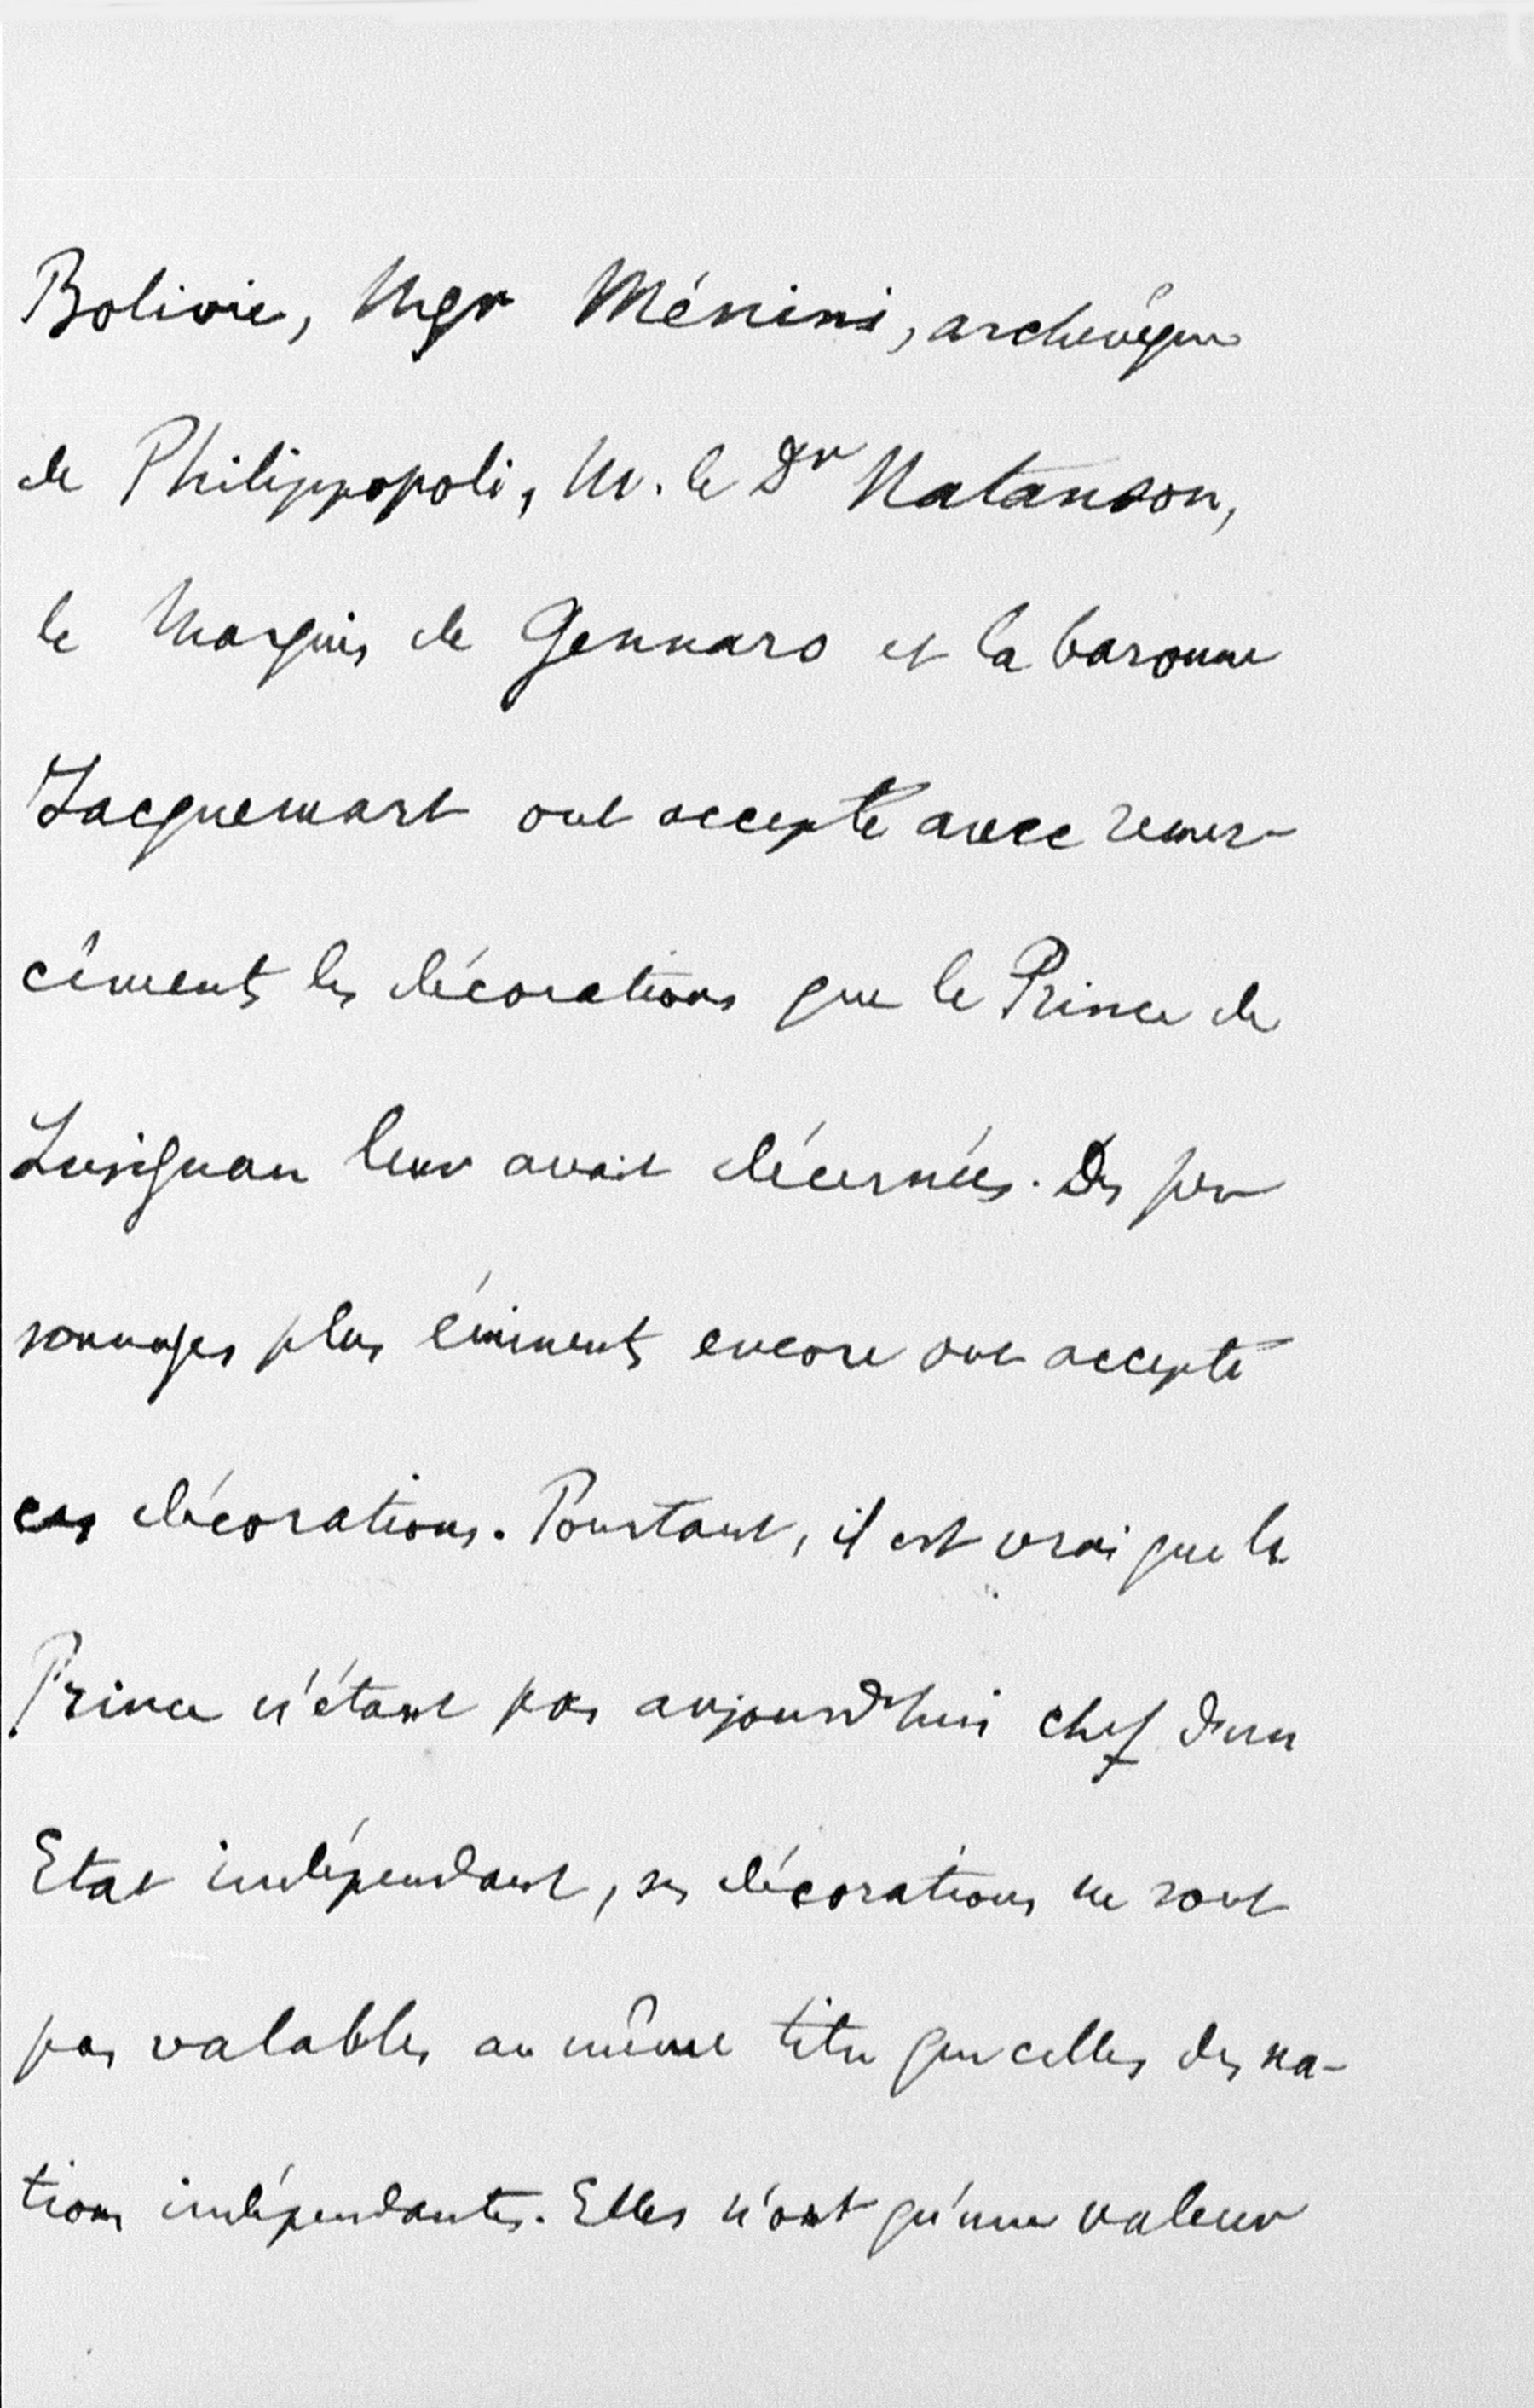 Bolivie, Mgr Ménini, archevêque
de Philippopoli, M. le Dr Natanson,
le Marquis de Gennaro et la baronne
Jacquemart ont accepté avec remer-
cîments les décorations que le Prince de
Lusignan leur avait décernées. Des per
sonnages plus éminents encore ont accepté
ces décorations. Pourtant, il est vrai que le
Prince n'étant pas aujourd'hui chef d'un
Etat indépendant, ses décorations ne sont
pas valables au même titre que celles des na-
tions indépendantes. Elles n'ont qu'une valeur